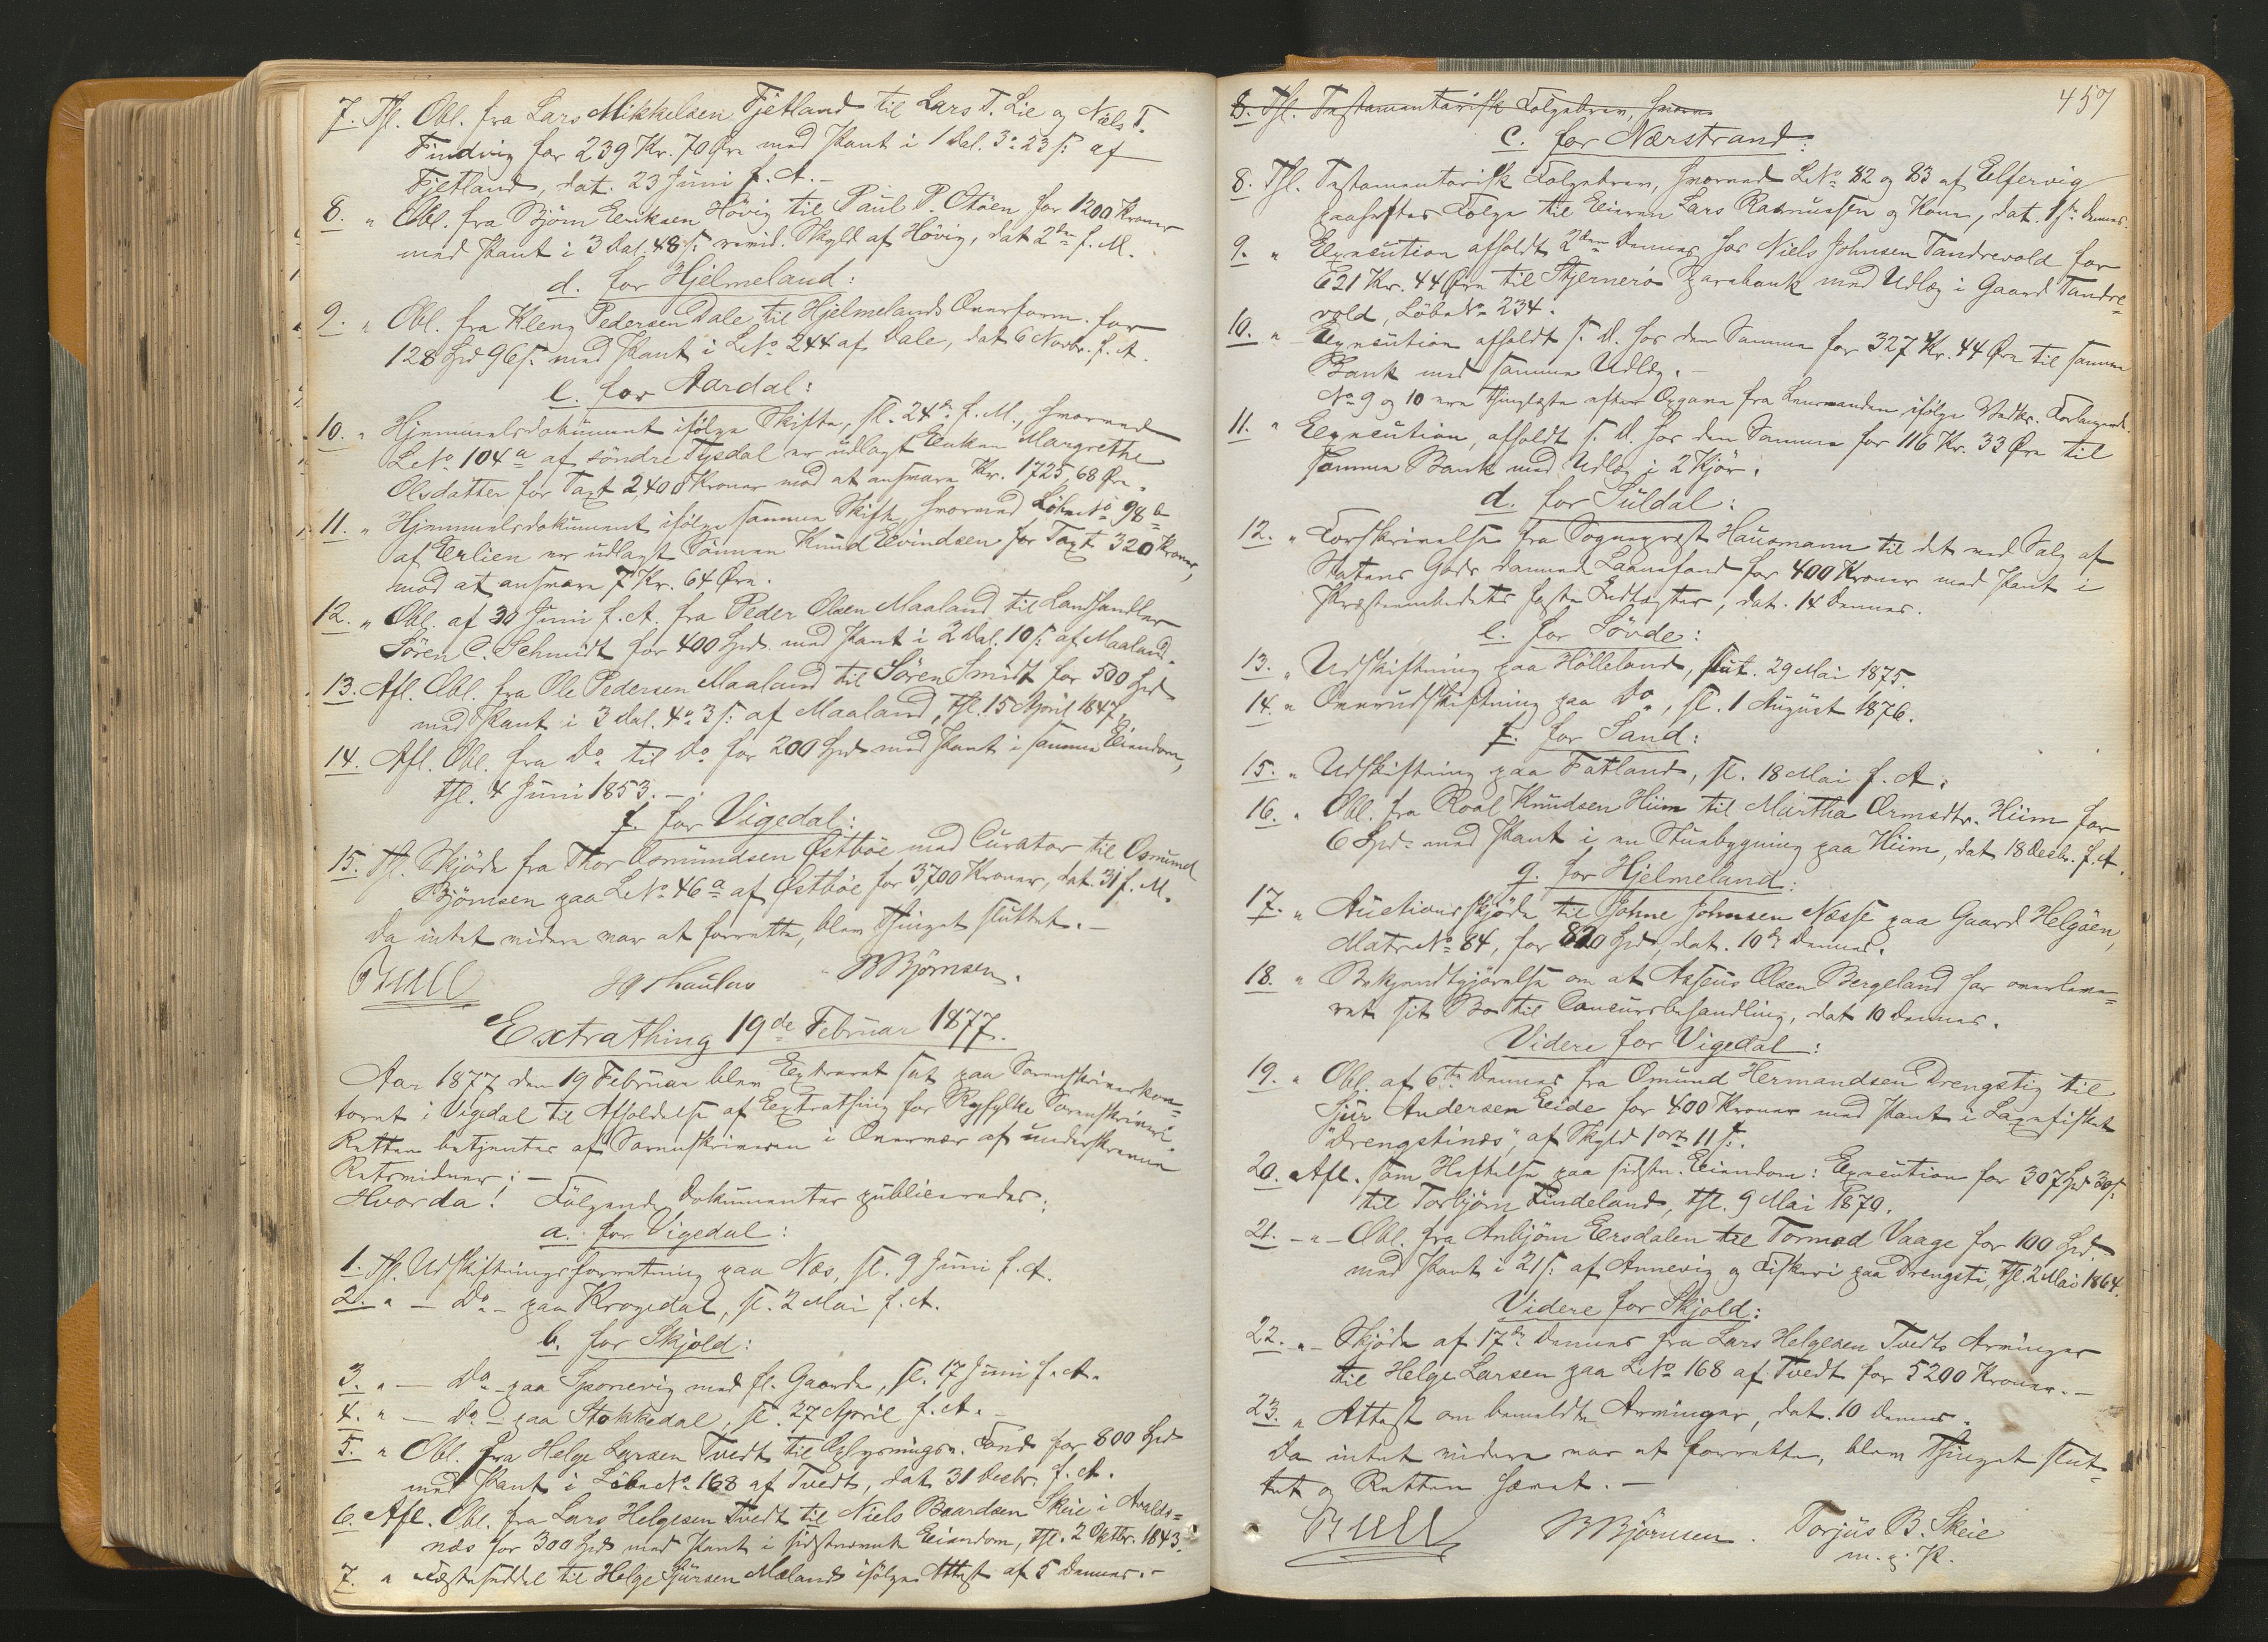 7. Tl. Obl. fra Lars Mikkelsen Fjetland til Lars T. Lie og Niels T.
Findvig for 239 Kr. 70 Øre med Pant i 1 Dal. 3 o: 23 s: af
Fjetland, dat. 23 Juni f. A. –
8. " Obl. fra Bjørn Eeriksen Høvig til Paul P. Otöen for 1200 Kroner
med Pant i 3 Dal. 48 s: revid. Skyld af Høvig, dat 2den f. M.
d. for Hjelmeland:
9. " Obl. fra Kleng Pedersen Dale til Hjelmelands Overform. for
128 Spd 96 s: med Pant i L.No. 244 af Dale, dat 6 Novbr. f. A.
e. for Aardal:
10. " Hjemmelsdokument ifølge Skifte, sl. 24de f. M., hvorved
L.No. 104a af söndre Tysdal er udlagt Enken Margrethe
Olsdatter for Taxt 2,400 Kroner mod at ansvare Kr. 1725,68 Øre.
11. " Hjemmelsdokument ifølge samme Skifte hvorved Löbe No 98b
af Eerlien er udlagt Sönnen Knud Eevindsen for Taxt 320 Kroner,
mod at ansvare 7 Kr. 64 Øre.
12. " Obl. af 30 Juni f. A. fra Peder Olsen Maaland til Landhandler
Sören C. Schmidt for 400 Spd. med Pant i 2 Dal. 10 s: af Maaland.
13. Afl. Obl. fra Ole Pedersen Maaland til Sören Smidt for 500 Spd
med Pant i 3 Dal. 4 o: 3 s: af Maaland, tl. 15 April 1847.
14. Afl. Obl. fra Do til Do for 200 Spd med Pant i samme Eiendom,
tl. 4 Juni 1853. –
f. for Vigedal:
15. Tl. Skjöde fra Thor Osmundsen Østböe med Curator til Osmund
Björnsen paa L.No. 46a af Østböe for 3,700 Kroner, dat. 31 f. M.
Da intet videre var at forrette, blev Thinget sluttet. –
Bull BBjørnsen.
Extrathing 19de Februar 1877.
Aar 1877 den 19 Februar blev Extraret sat paa Sorenskriverkon=
toret i Vigedal til Afholdelse af Extrathing for Ryfylke Sorenskriveri.
Retten betjentes af Sorenskriveren i Overvær af underskrevne
Retsvidner; –
Hvorda! Følgende Dokumenter publiceredes:
a. for Vigedal:
1. Tl. Udskiftningsforretning paa Næs, sl. 9 Juni f. A.
2. " – Do – paa Krogedal, sl. 2 Mai f. A.
b. for Skjold:
3. " – Do – paa Sponevig med fl. Gaarde, sl. 17 Juni f. A.
4. " – Do – paa Stokkedal, sl. 27 April f. A. –
5. " Obl. fra Helge Larsen Tvedt til Oplysningsv. Fond for 800 Spd
med Pant i Löbe No. 168 af Tvedt, dat 31 Decbr. f. A.
6. Afl. Obl. fra Lars Helgesen Tvedt til Niels Baardsen Skeie i Avalds=
næs for 300 Spd med Pant i sidstnævnte Eiendom, tl. 2 Oktbr. 1843.
7. " Fæsteseddel til Helge Sjursen Mæland ifølge Attest af 5 dennes. –
457
8. Tl. Testamentarisk Følgebrev, hvorv
c. for Nærstrand:
8. Tl. Testamentarisk Følgebrev, hvorved L.No. 82 og 83 af Eelfervig
paaheftes Følge til Eieren Lars Rasmussen og Kone, dat. 1ste dennes.
9. " Execution afholdt 2den dennes hos Niels Johnsen Tandrevold for
621 Kr. 44 Øre til Stjernerö Sparebank med Udlæg i Gaard Tandre=
vold, Löbe No. 234.
10. " Execution afholdt s. D. hos den Samme for 327 Kr. 44 Øre til samme
Bank med samme Udlæg. –
No. 9 og 10 ere thinglæste efter Opgave fra Lensmanden ifølge Vedk. Forlangende.
11. " Execution, afholdt s. D. hos den Samme for 116 Kr. 33 Øre til
samme Bank med Udlæg i 2 Kjör.
d. for Suldal:
12. " Forskrivelse fra Sognepræst Hausmann til det ved Salg af
Statens Gods dannede Laanefond for 400 Kroner med Pant i
Præsteembedets faste Indtægter, dat. 14 dennes.
e. for Sövde:
13. " Udskiftning paa Hölleland, slut. 29 Mai 1875.
14. " Overudskiftning paa Do, sl. 1 August 1876.
f. for Sand:
15. " Udskiftning paa Fatland, sl. 18 Mai f. A.
16. " Obl. fra Roal Knudsen Hiim til Martha Ormsdtr. Hiim for
6 Spd. med Pant i en Stuebygning paa Hiim, dat 18 Decbr. f. A.
g. for Hjelmeland:
17. " Auctionsskjöde til Johne Johnsen Næsse paa Gaard Helgöen,
Matr No. 84, for 820 Spd., dat. 10de dennes.
18. " Bekjendtgjörelse om at Asseus Olsen Bergeland har overleve=
ret sit Bo til Concursbehandling, dat 10 dennes.
Videre for Vigedal:
19. " Obl. af 6te dennes fra Omund Hermandsen Drengstig til
Sjur Andersen Eeide for 400 Kroner med Pant i Laxefisket
"Drengstinæs", af Skyld 1 ort 11 s:.
20. Afl. som Heftelse paa sidstn. Eiendom: Execution for 307 Spd 30 s:
til Torbjörn Tindeland, tl. 9 Mai 1870.
21. – " – Obl. fra Anbjörn Eersdalen til Tormod Vaage for 100 Spd.
med Pant i 21 s: af Annevig og Fiskeri paa Drengsti, tl. 2 Mai 1864.
Videre for Skjold:
22. " – Skjöde af 17de dennes fra Lars Helgesen Tvedts Arvinger
til Helge Larsen paa L.No. 168 af Tvedt for 5200 Kroner. –
23. " Attest om bemeldte Arvinger, dat. 10 dennes.
Da intet videre var at forrette, blev Thinget slut=
tet og Retten hævet. –
Bull BBjörnsen. Torjus B. Skeie
m. p. P.